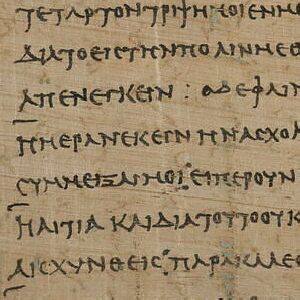 ΤΕΤΑΡΤΟΝΤΡΙΨΗΜΟΙΕΝΝΗ
ΔΙΑΤΟΕΙΣΤΗΝΠΟΛΙΝΜΕΘ
ΑΠΕΝΕΓΚΕΙΝ : ΟΔΕΦΑΙΝ
ΗΜΕΡΑΝΕΚΕΙΝΗΝΑΣΧΟΛ
ΣΥΜΜΕΙΞΑΙΜΟΙ : ΕΙΠΕΡΟΥΝ
ΗΑΙΤΙΑ ΚΑΙΔΙΑΤΟΥΤΟΟΥΚ
ΑΙΣΧΥΝΘΕΙΣ : ΠΑΡΑΚΑΛΕΣ